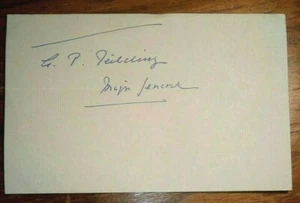 G. P. Feilding
Majr General